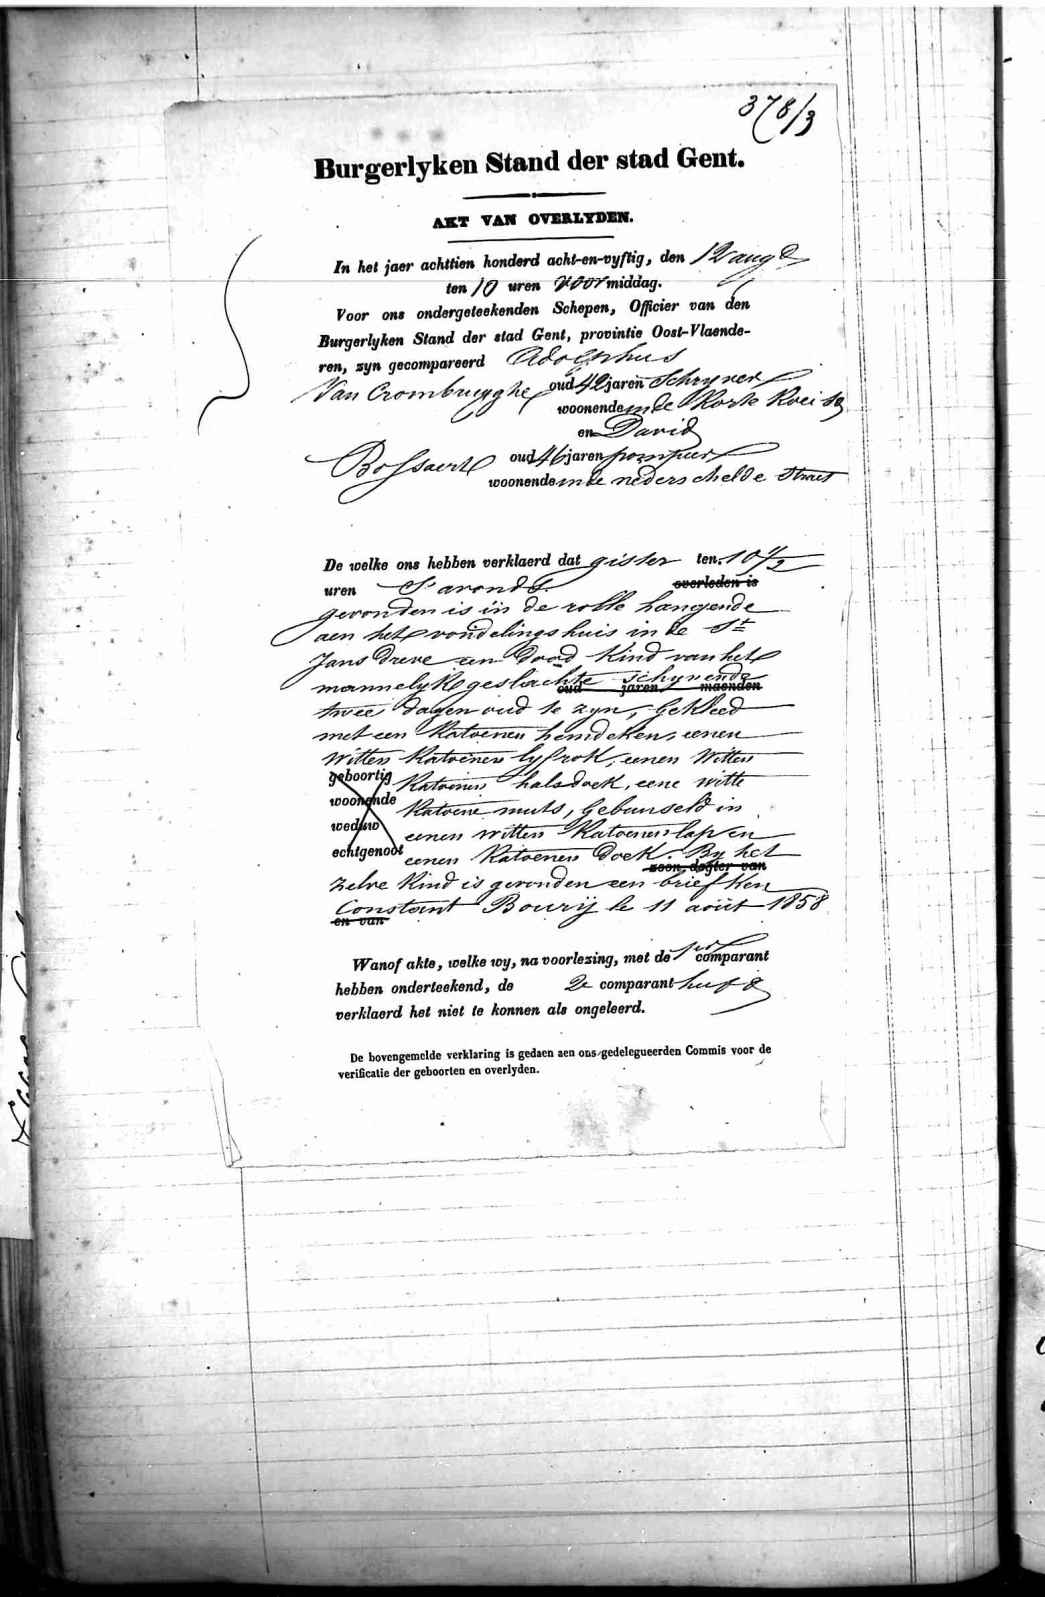 378/3
Burgerlyken Stand der stad Gent.
AKT VAN OVERLYDEN.
In het jaer achttien honderd acht-en-vyftig, den 12 aug
ten 10 uren voormiddag.
Voor ons ondergeteekenden Schepen, Officier van den
Burgerlyken Stand der stad Gent, provintie Oost-Vlaende-
ren, zyn gecompareerd Adolphus
Van Crombrugghe oud 42 jaren Schryver
woonende in de Korte
en David
Bossaert oud 46 jaren pompier
woonende in de nederschelde straet
De welke ons hebben verklaerd dat gister ten 10 1/2
uren S'avonds overleden is
gevonden is in de rolle hangende
aen het vondelingshuis in de St
Jans dreve een dood kind van het
mannelyk geslachte schynende
oud jaren maenden
twee dagen oud te zyn, gekleed
met een Katoenen hemdeken, eenen
witten Katoenen lyfrok, eenen witten
geboortig Katoenen halsdoek, eene witte
woonende Katoene muts, gebunseld in
weduw eenen witten Katoenen lap en
echtgenoot eenen Katoenen doek. By het
zoon, dogter van
zelve kind is gevonden een briefken
Constant Bourij le 11 août 1858
en van
Wanof akte, welke wy, na voorlezing, met de 1en comparant
hebben onderteekend, de 2e comparant heeft
verklaerd het niet te konnen als ongeleerd.
De bovengemelde verklaring is gedaen aen ons gedelegueerden Commis voor de
verificatie der geboorten en overlyden.